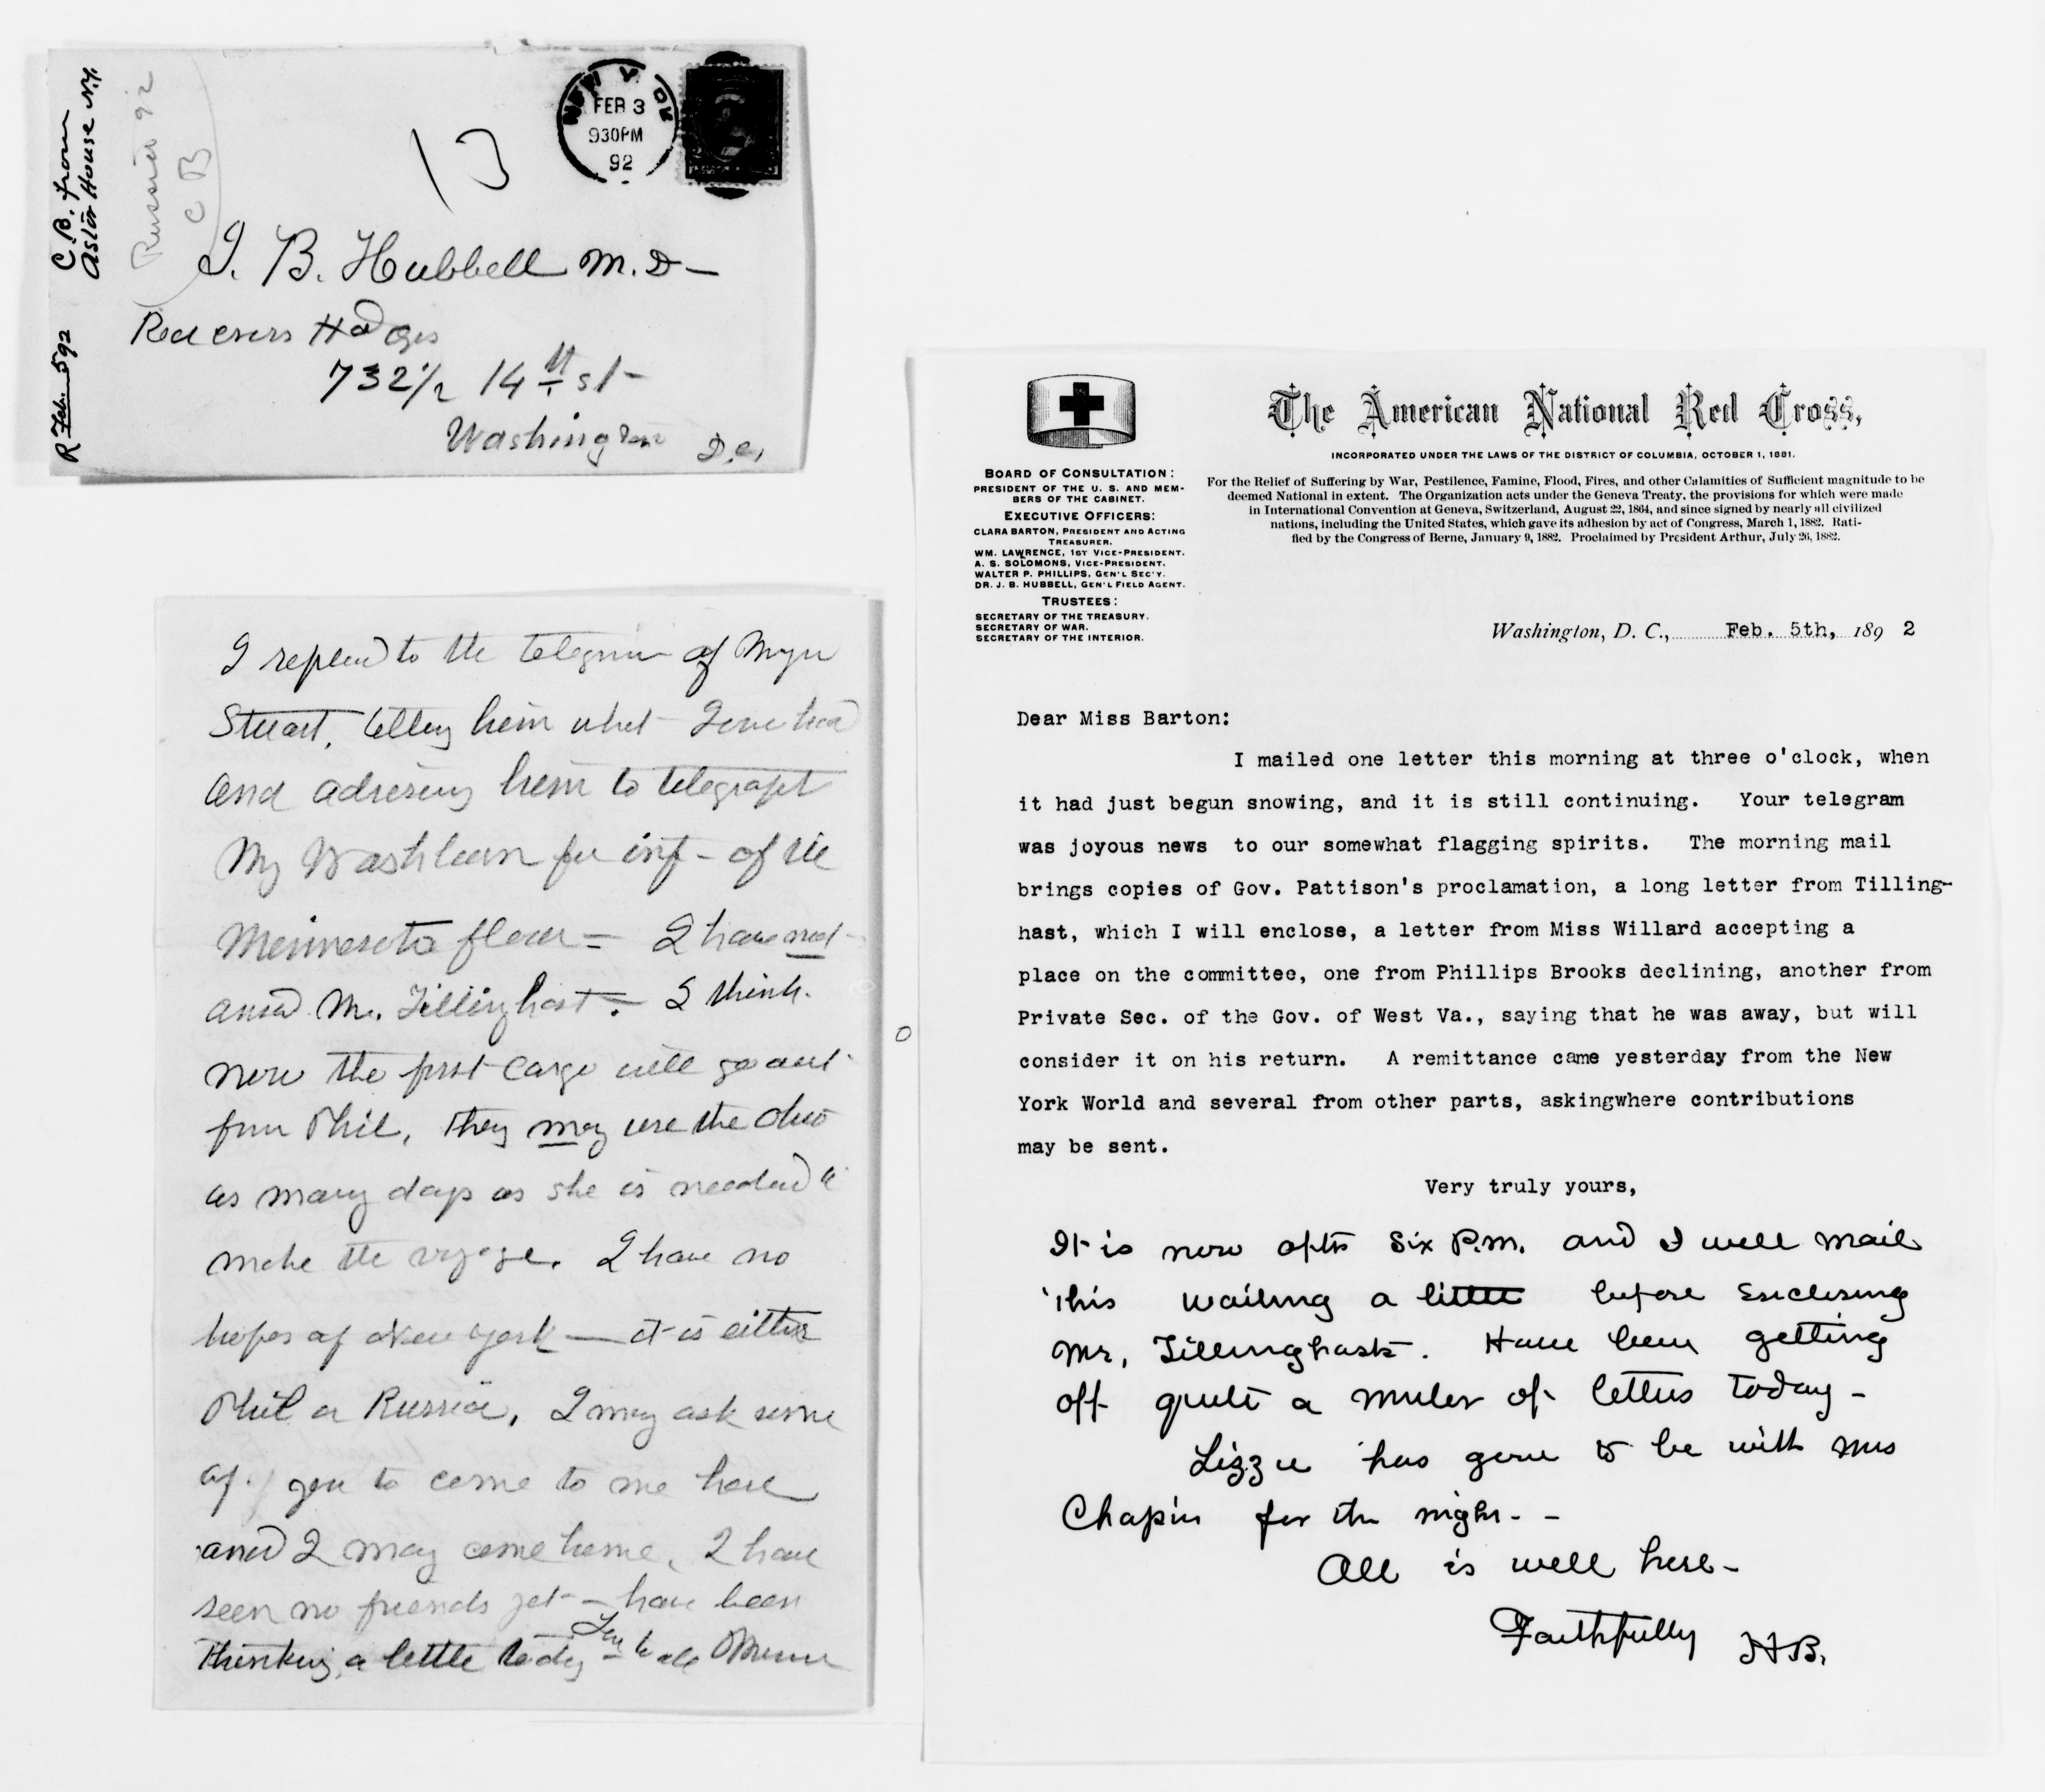 C.B. from
Astor House N.Y.
R Feb. 5 92
Russia 92
C B
13
NEW YOR
FEB 3
930PM
92
J. B. Hubbell M.D—
Red cross Hd Qrs
732½ 14th st—
Washington D.C.
I replied to the telegram of Mayor
Stuart, telling him what Iowa had
and advising him to telegraph
Mr Washburn for inf— of the
Minnesota flour = I have not
ansd Mr. Tillinghast. I think
now the first cargo will go out
from Phil, they may use the Ohio
as many days as she is needed to
make the voyage. I have no
hopes of New York — it is either
Phil or Russia. I may ask some
of you to come to me here
and I may come home. I have
seen no friends yet — have been
thinking a little today
to all
The American National Red Cross,
INCORPORATED UNDER THE LAWS OF THE DISTRICT OF COLUMBIA, OCTOBER 1, 1881.
For the Relief of Suffering by War, Pestilence, Famine, Flood, Fires, and other Calamities of Sufficient magnitude to be
deemed National in extent. The Organization acts under the Geneva Treaty, the provisions for which were made
in International Convention at Geneva, Switzerland, August 22, 1864, and since signed by nearly all civilized
nations, including the United States, which gave its adhesion by act of Congress, March 1, 1882. Rati-
fied by the Congress of Berne, January 9, 1882. Proclaimed by President Arthur, July 26, 1882.
BOARD OF CONSULTATION:
PRESIDENT OF THE U. S. AND MEM-
BERS OF THE CABINET.
EXECUTIVE OFFICERS:
CLARA BARTON, PRESIDENT AND ACTING
TREASURER.
WM. LAWRENCE, 1ST VICE-PRESIDENT.
A. S. SOLOMONS, VICE-PRESIDENT.
WALTER P. PHILLIPS, GEN'L SEC'Y.
DR. J. B. HUBBELL, GEN'L FIELD AGENT.
TRUSTEES:
SECRETARY OF THE TREASURY.
SECRETARY OF WAR.
SECRETARY OF THE INTERIOR.
Washington, D. C., Feb. 5th, 189 2
Dear Miss Barton:
I mailed one letter this morning at three o'clock, when
it had just begun snowing, and it is still continuing. Your telegram
was joyous news to our somewhat flagging spirits. The morning mail
brings copies of Gov. Pattison's proclamation, a long letter from Tilling-
hast, which I will enclose, a letter from Miss Willard accepting a
place on the committee, one from Phillips Brooks declining, another from
Private Sec. of the Gov. of West Va., saying that he was away, but will
consider it on his return. A remittance came yesterday from the New
York World and several from other parts, askingwhere contributions
may be sent.
Very truly yours,
It is now after Six P.M. and I will mail
this waiting a little before enclosing
Mr. Tillinghasts. Have been getting
off quite a number of letters today—
Lizzie has gone to be with Mrs
Chapin for the night - -
All is well here—
Faithfully H B.